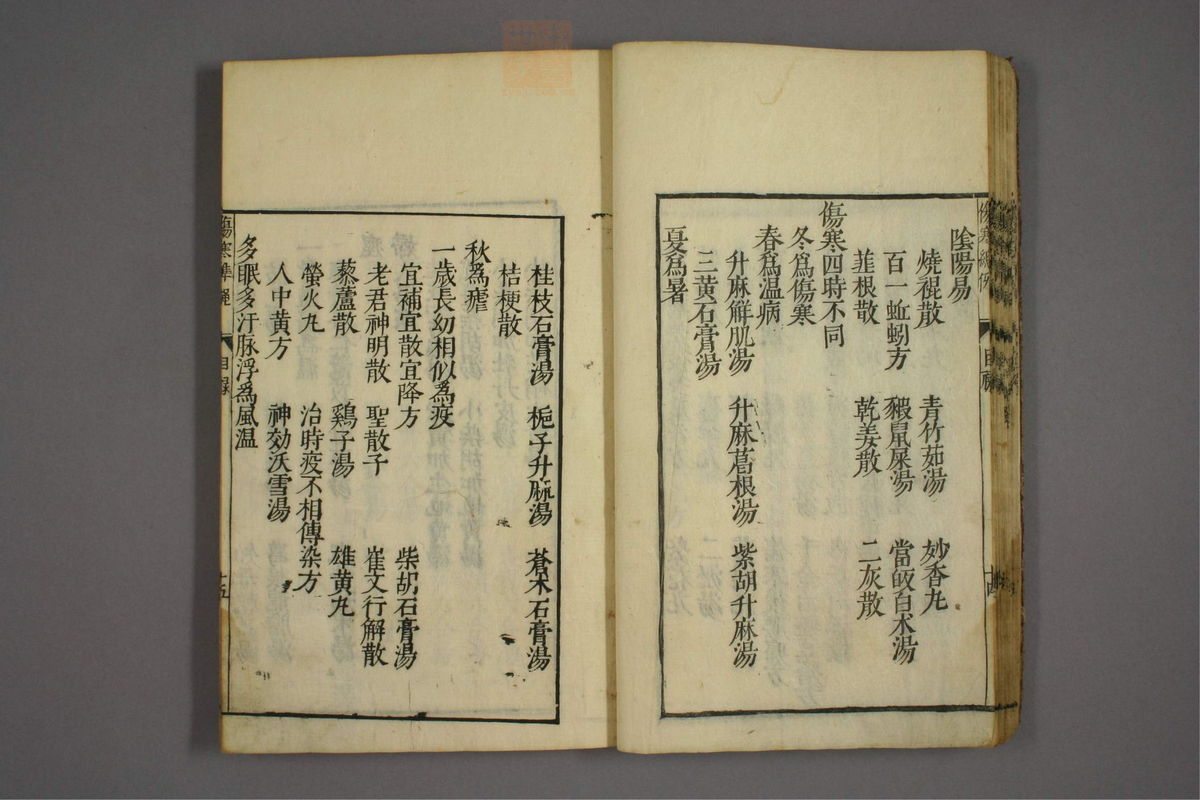 陰陽易
燒裩散　青竹茹湯　妙香丸
百一蚯蚓方　豭鼠屎湯　當皈白术湯
韮根散　乾姜散　二灰散
傷寒四時不同
冬爲傷寒
春爲温病
升麻解肌湯　升麻葛根湯　紫胡升麻湯
三黄石膏湯
夏爲暑
桂枝石膏湯　梔子升麻湯　蒼术石膏湯
桔梗散
秋爲瘧
一歲長幼相似爲疫
宜補宜散宜降方　柴胡石膏湯
老君神明散　聖散子　崔文行解散
藜蘆散　鷄子湯　雄黄丸
螢火丸　治時疫不相傳染方
人中黄方　神効沃雪湯
多眠多汗脉浮爲風温
傷寒準繩　目録　十五